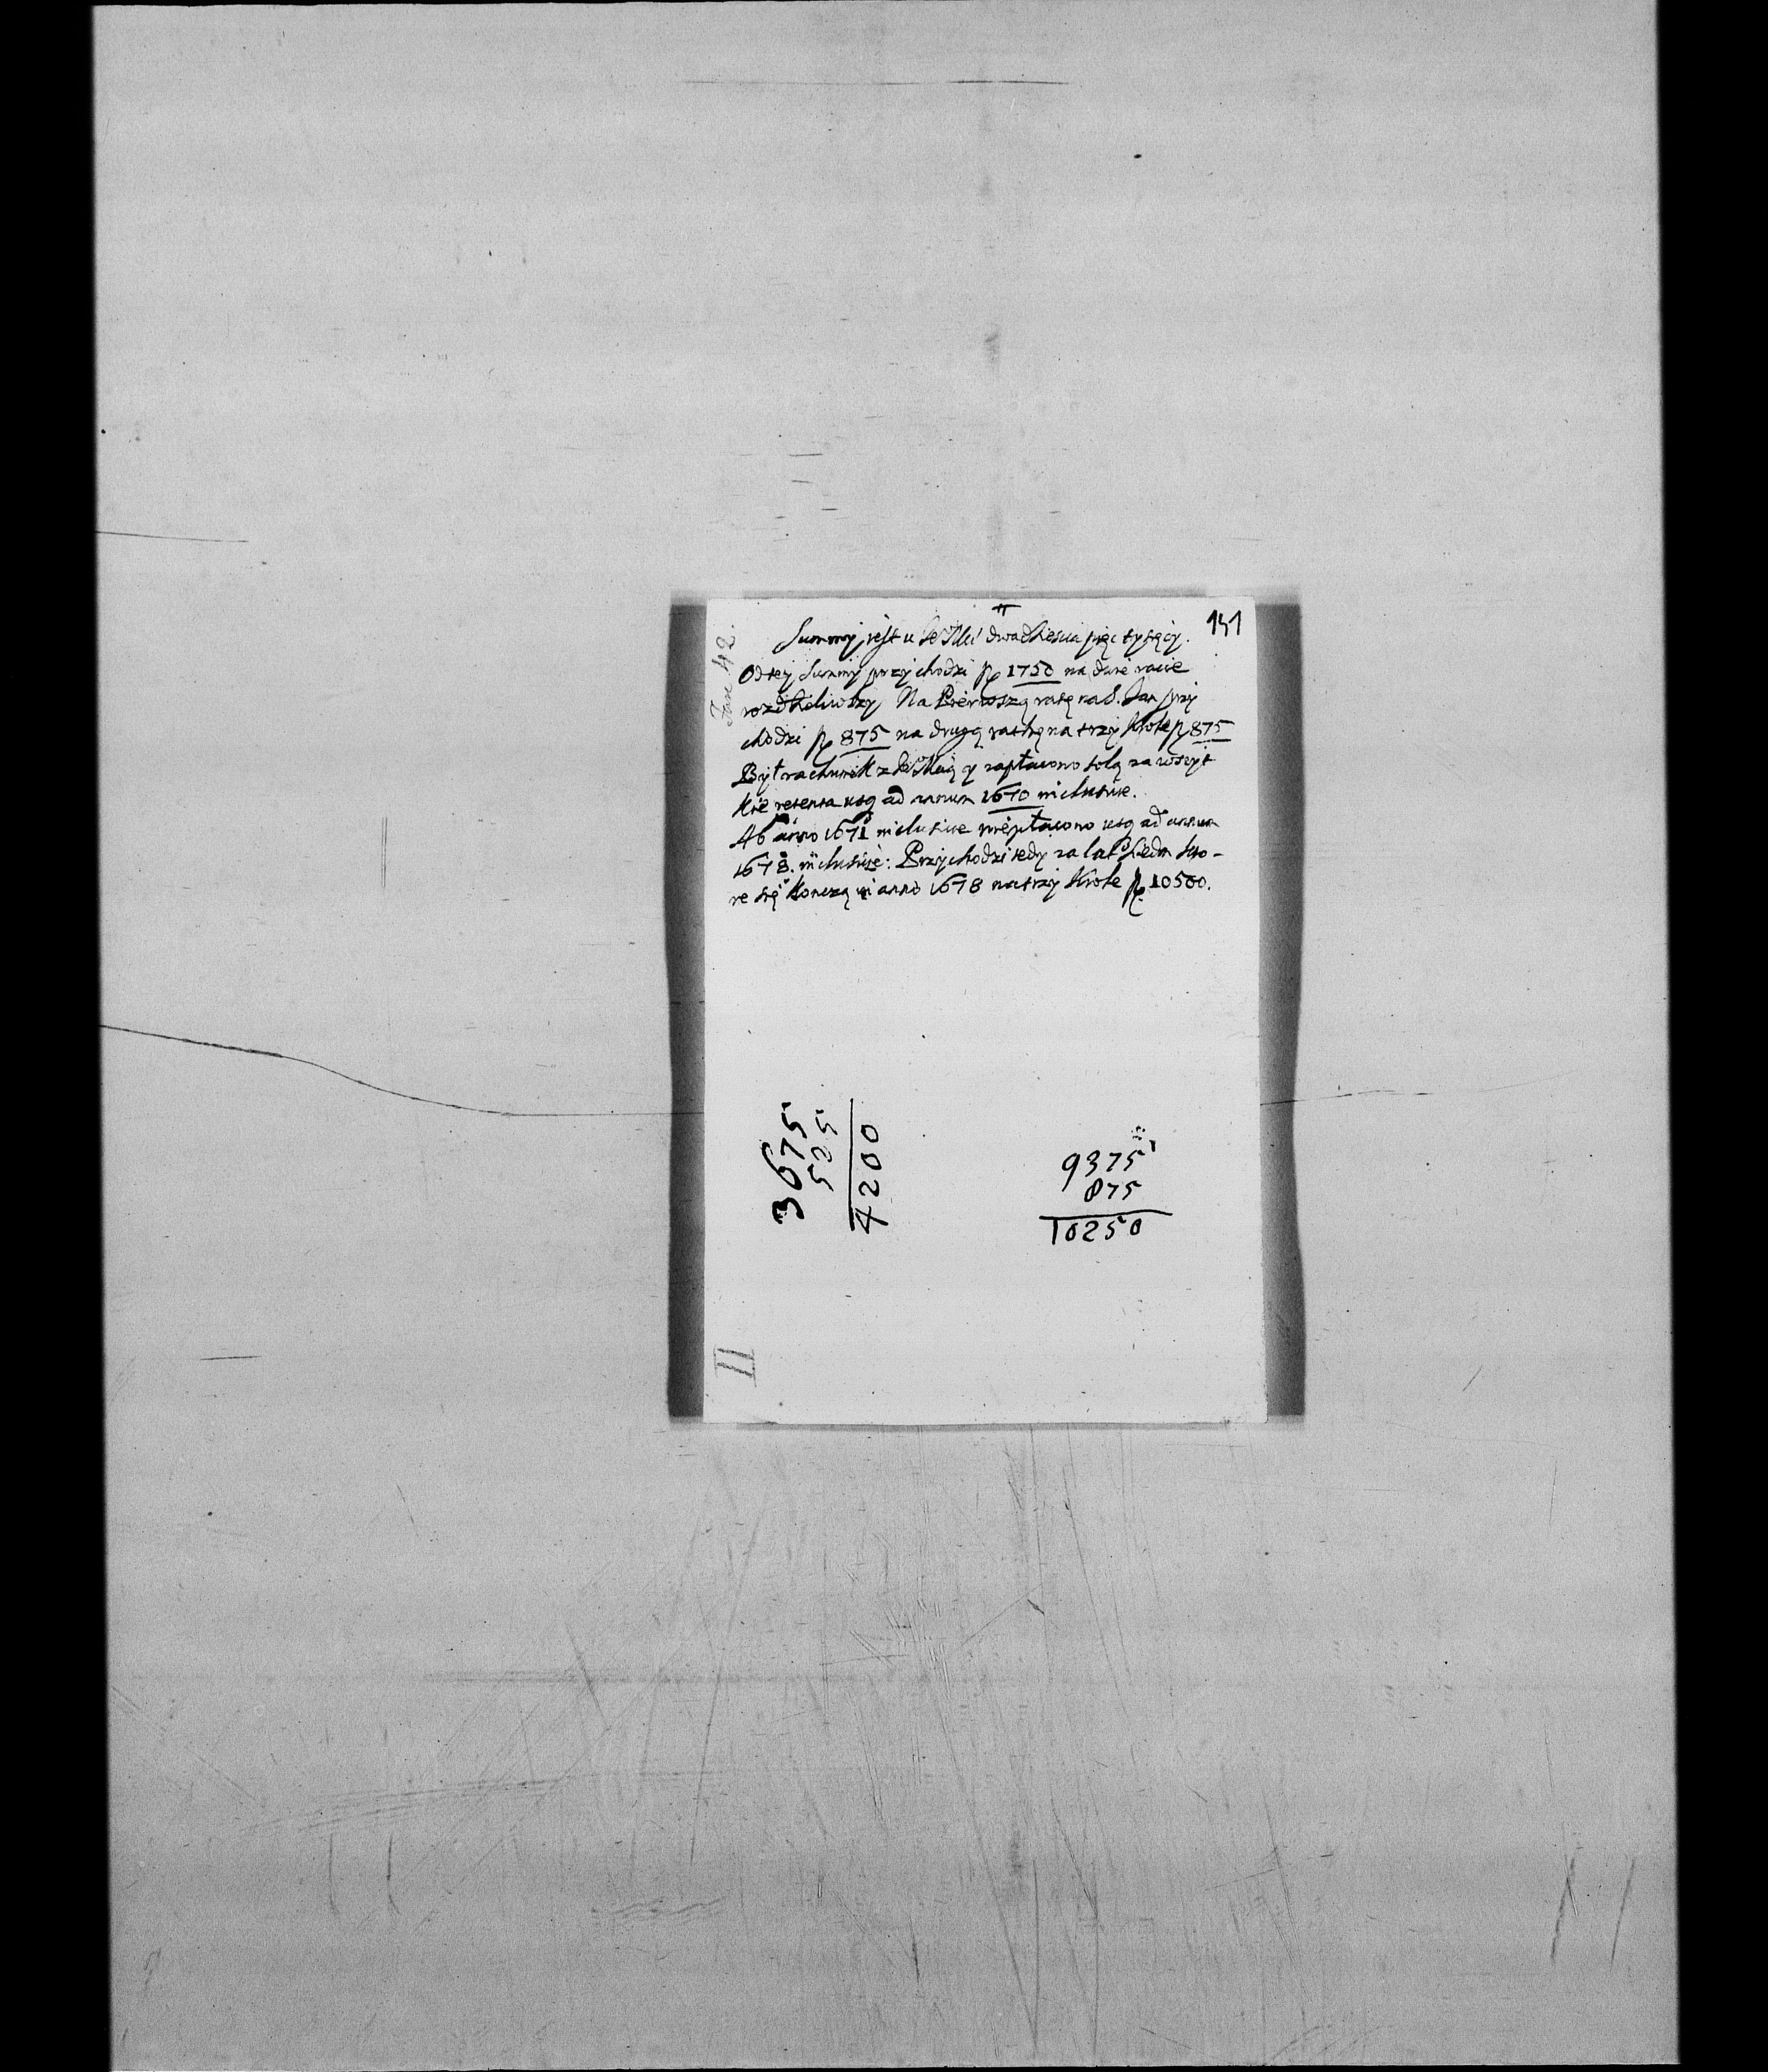 II
141
Fasc 42.
Summy jest u Je Mci dwadziescia pięc tysięcy.
Od tey Summy przychodzi fl 1750 na dwie racie
rozdzieliwszy Na Pierwszą ratę na S. Jan przy
chodzi fl 875 na drugą rathę na trzy Krole fl 875
Był rachunek z Je Mcią y zapłacono solą za wszyt
kie retenta usq ad annum 1670 inclusive.
Ab anno 1671 inclusive nie płacono usq ad annum
1678. inclusive: Przychodzi tedy za lat siedm kto-
re się konczą in anno 1678 na trzy Krole fl. 10500.
3675
525
4200
9375
875
10250
II